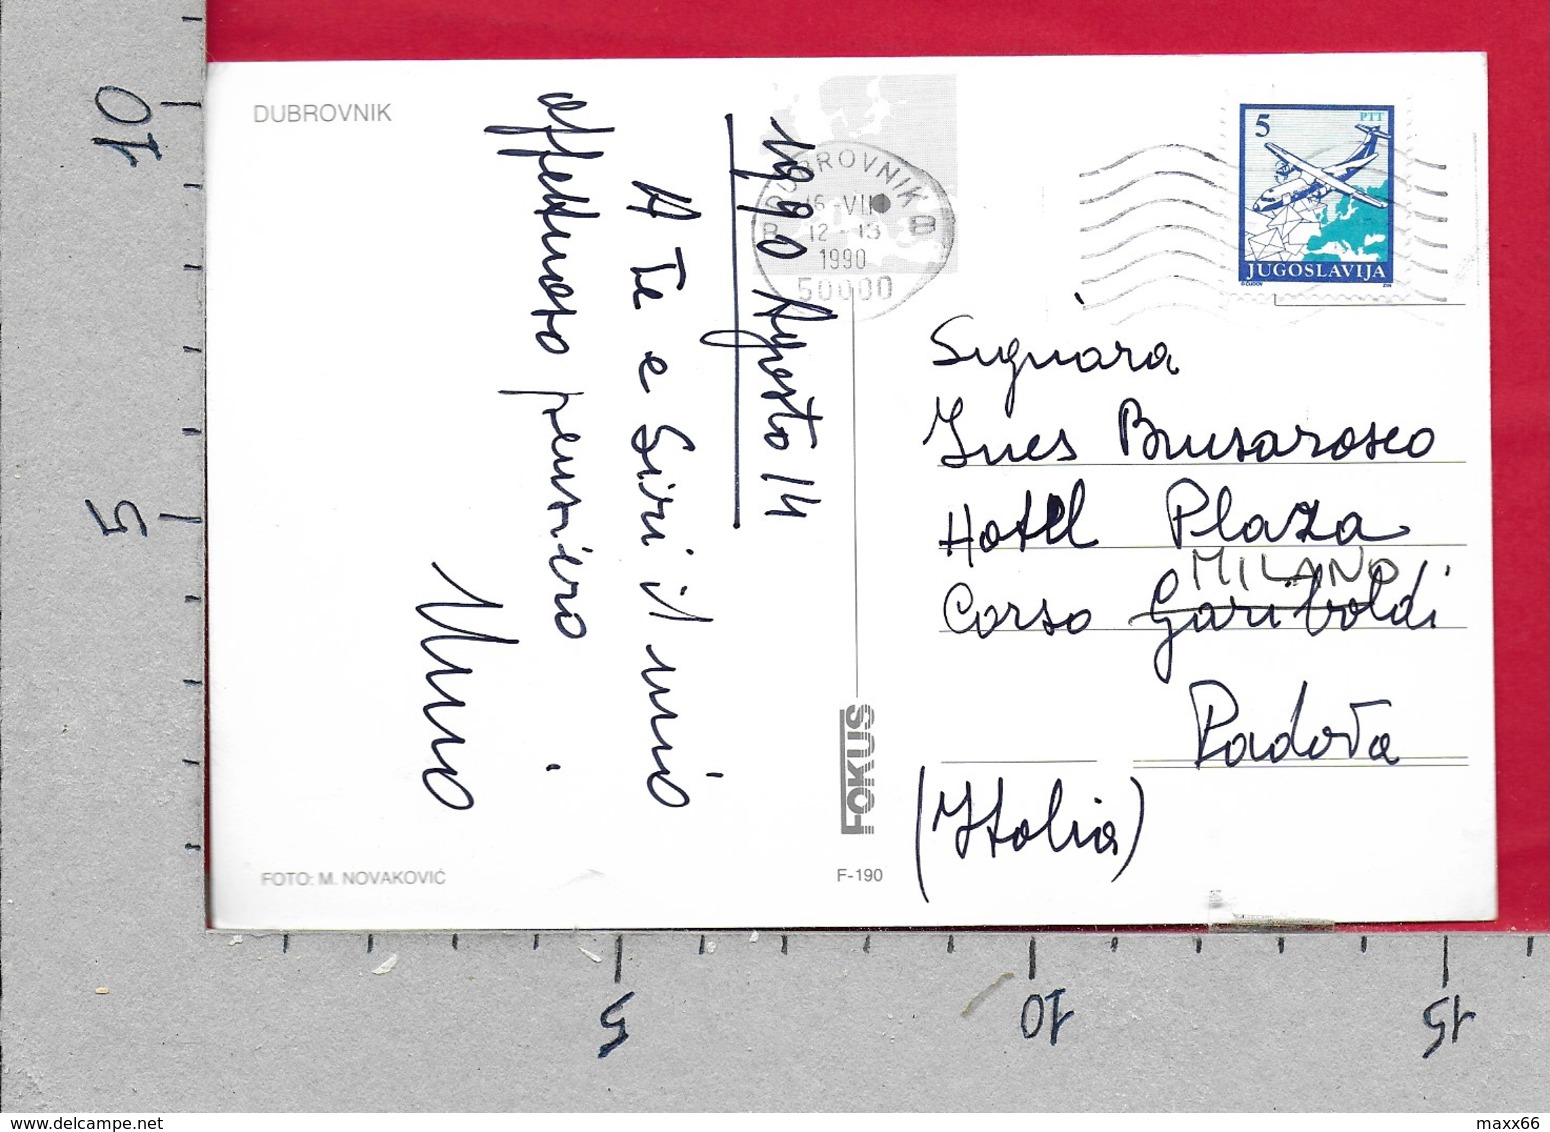 DUBROVNIK
1990 Agosto 14
A Te e Siri il mio
affettuoso pensiero.
Nino
FOTO: M. NOVAKOVIĆ
FOKUS
F-190
DUBROVNIK
B B
16 VII
12-13
1990
50000
5
PTT
JUGOSLAVIJA
Signora
Ines Brusarosco
Hotel Plaza
MILANO
Corso Garibaldi
Padova
(Italia)
10
5
5
10
15
www.delcampe.net
maxx66